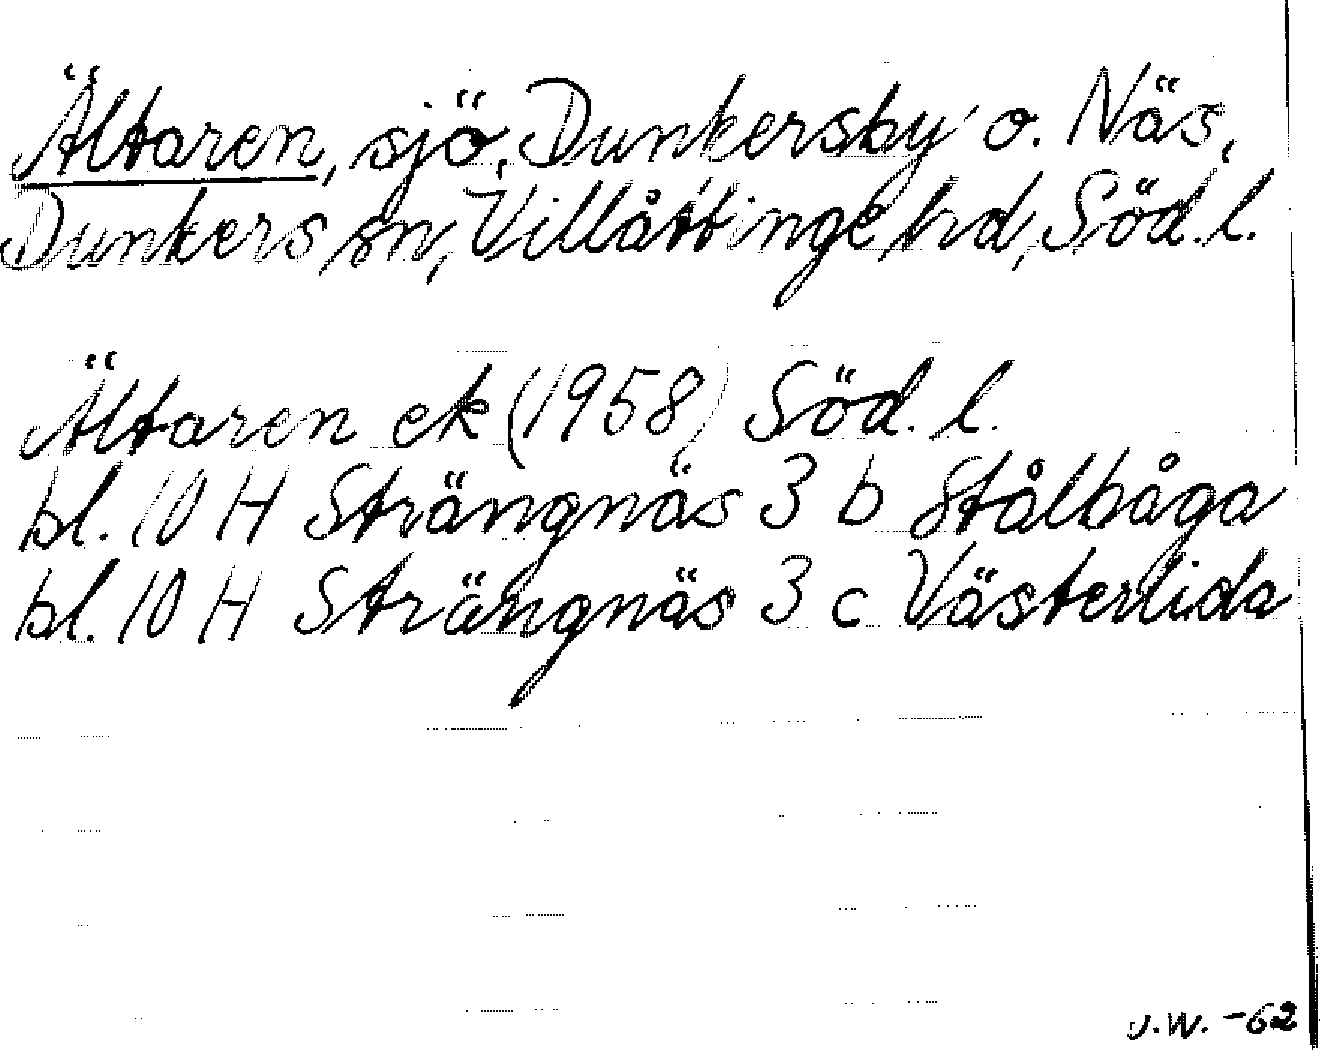 Ältaren, sjö, Dunkersby o. Näs,
Dunkers sn, Villåttinge hd, Söd. l.
Ältaren ek (1958) Söd. l.
bl. 10 H Strängnäs 3 b Stålbåga
bl. 10 H Strängnäs 3 c Västerlida
J.W. -62